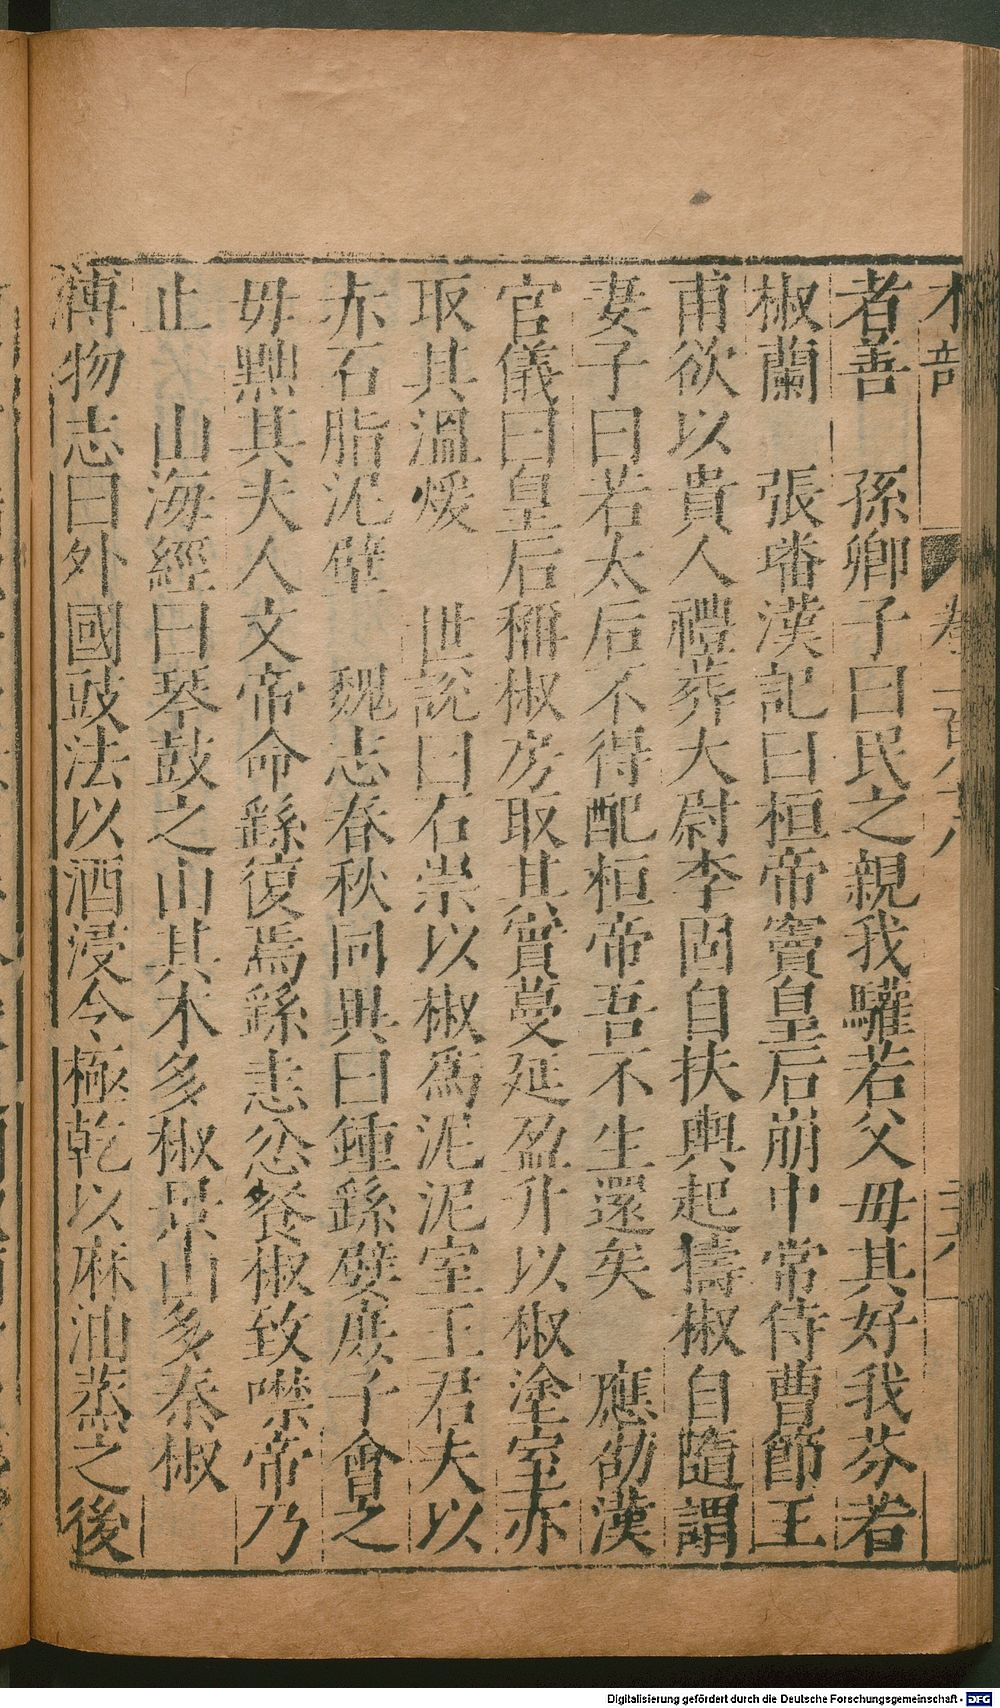 木部 卷一百六十八 三六
者善 孫卿子曰民之親我驩若父毋其好我芬若
椒蘭 張璠漢記曰桓帝竇皇后崩中常侍曹節王
甫欲以貴人禮葬大尉李固自扶輿起擣椒自隨謂
妻子曰若太后不得配桓帝吾不生還矣 應劭漢
官儀曰皇后稱椒房取其實蔓延盈升以椒塗室亦
取其溫煖 世說曰石崇以椒爲泥泥室王君夫以
赤石脂泥壁 魏志春秋同異曰鍾繇嬖庶子會之
毋黜其夫人文帝命繇復焉繇恚忿餐椒致噤帝乃
止 山海經曰琴鼓之山其木多椒景山多秦椒
博物志曰外國豉法以酒浸令極乾以麻油蒸之後
Digitalisierung gefördert durch die Deutsche Forschungsgemeinschaft - DFG